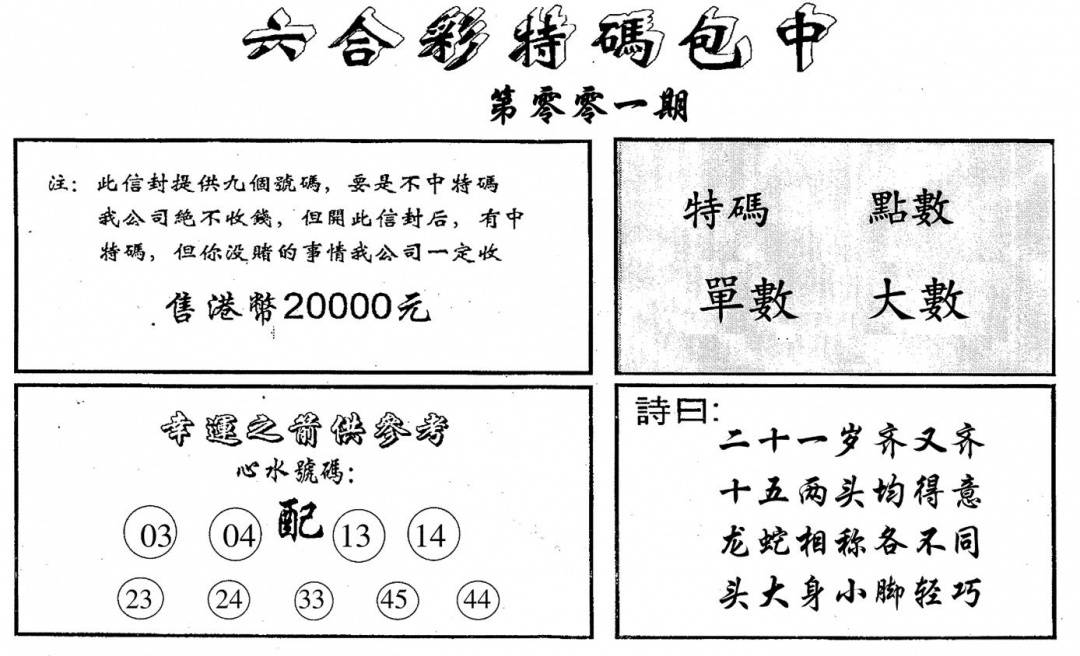 六合彩特碼包中
第零零一期
注：此信封提供九個號碼，要是不中特碼
我公司絕不收錢，但開此信封后，有中
特碼，但你没賭的事情我公司一定收
售港幣20000元
特碼 點數
單數 大數
幸運之箭供參考
心水號碼：
03 04 配 13 14
23 24 33 45 44
詩曰：
二十一岁齐又齐
十五两头均得意
龙蛇相称各不同
头大身小脚轻巧